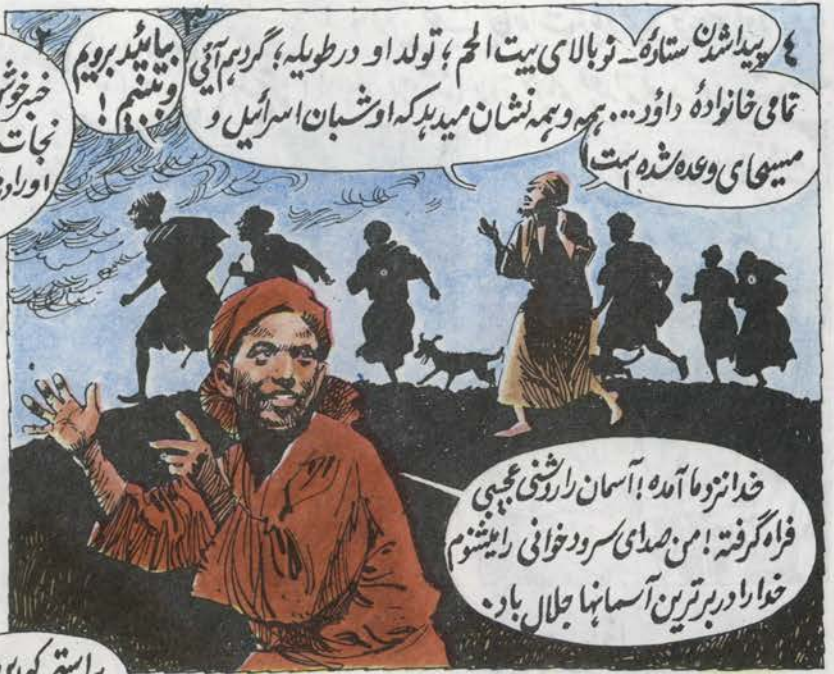 ۲
خبر خوش
نجات
۳
بیائید برویم
و ببینیم !
٤ پیداشدن ستارهٔ نو بالای بیت الحم ؛ تولد او در طویله ؛ گرد هم آئی
تمامی خانوادهٔ داؤد... همه و همه نشان میدهد که او شبان اسرائیل و
مسیحای وعده شده است
خدا نزد ما آمده ! آسمان را روشنی عجیبی
فراه گرفته ! من صدای سرود خوانی را میشنوم
خدا را در برترین آسمانها جلال باد .
راستی که